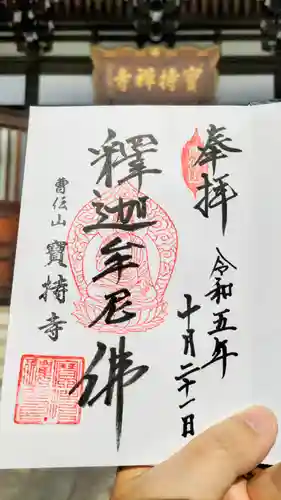 寶持禪寺
奉拝
令和五年
十月二十一日
釋迦牟尼佛
曹伝山
寳持寺